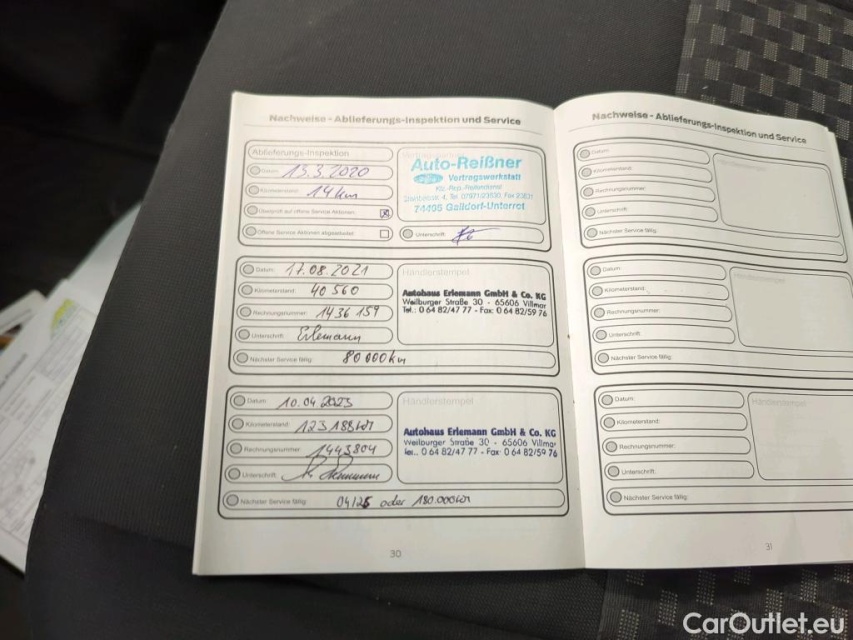 Nachweise - Ablieferungs-Inspektion und Service
Ablieferungs-Inspektion
Datum: 13.3.2020
Kilometerstand: 14 km
Überprüft auf offene Service Aktionen:
Offene Service Aktionen abgearbeitet:
Auto-Reißner
Vertragswerkstatt
74405 Gaildorf-Unterrot
Unterschrift:
Datum: 17.08.2021
Kilometerstand: 40 560
Rechnungsnummer: 1436 159
Unterschrift: Erlemann
Nächster Service fällig: 80 000km
Händlerstempel
Autohaus Erlemann GmbH & Co. KG
Weilburger Straße 30 - 65606 Villmar
Tel.: 0 64 82/47 77 - Fax: 0 64 82/59 76
Datum: 10.04.2023
Kilometerstand: 123 188 km
Rechnungsnummer: 1443804
Unterschrift:
Nächster Service fällig: 04/25 oder 180.000km
Händlerstempel
Autohaus Erlemann GmbH & Co. KG
Weilburger Straße 30 - 65606 Villmar
Tel.: 0 64 82/47 77 - Fax: 0 64 82/59 76
30
Nachweise - Ablieferungs-Inspektion und Service
Datum:
Kilometerstand:
Rechnungsnummer:
Unterschrift:
Nächster Service fällig:
Händlerstempel
Datum:
Kilometerstand:
Rechnungsnummer:
Unterschrift:
Nächster Service fällig:
Händlerstempel
Datum:
Kilometerstand:
Rechnungsnummer:
Unterschrift:
Nächster Service fällig:
Händlerstempel
31
CarOutlet.eu